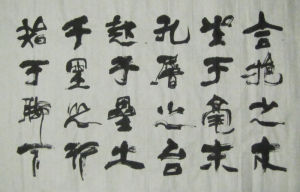 合抱之木
生于毫末
九層之台
起于壘土
千里之行
始于腳下